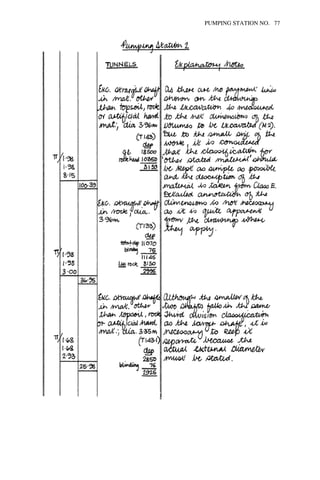 PUMPING STATION NO. 77
Pumping Station 2
TUNNELS
Explanatory Notes
Exc. straight shaft
in mat. other
than topsoil, rock
or artificial hard
mat; dia 3·96m
(T143)
dep
gl 18500
rockhead 10350
8150
π/ 1·98
1·98
8·15
100·39
As there are no payment lines
shown on the drawings
the excavation is measured
to the net dimensions of the
volumes to be excavated (M2).
Due to the small size of the
work, it is considered
that the classification for
other stated material should
be kept as simple as possible
and the description of the
material is taken from Class E.
Detailed annotation of the
dimensions is not necessary
as it is quite apparent
from the drawings where
they apply.
Exc. straight shaft
in rock; dia.
3·96m
(T133)
dep
11070
blinding 76
11146
Less rock 8150
2996
π/ 1·98
1·98
3·00
36·95
Exc. straight shafts
in mat. other
than topsoil, rock
or artificial hard
mat.; dia. 3·35m
(T143·1)
dep
2850
blinding 76
2926
π/ 1·68
1·68
2·93
25·98
Although the smaller of the
two shafts falls in the same
third division classification
as the larger shaft, it is
necessary to keep it
separate because the
actual external diameter
must be stated.